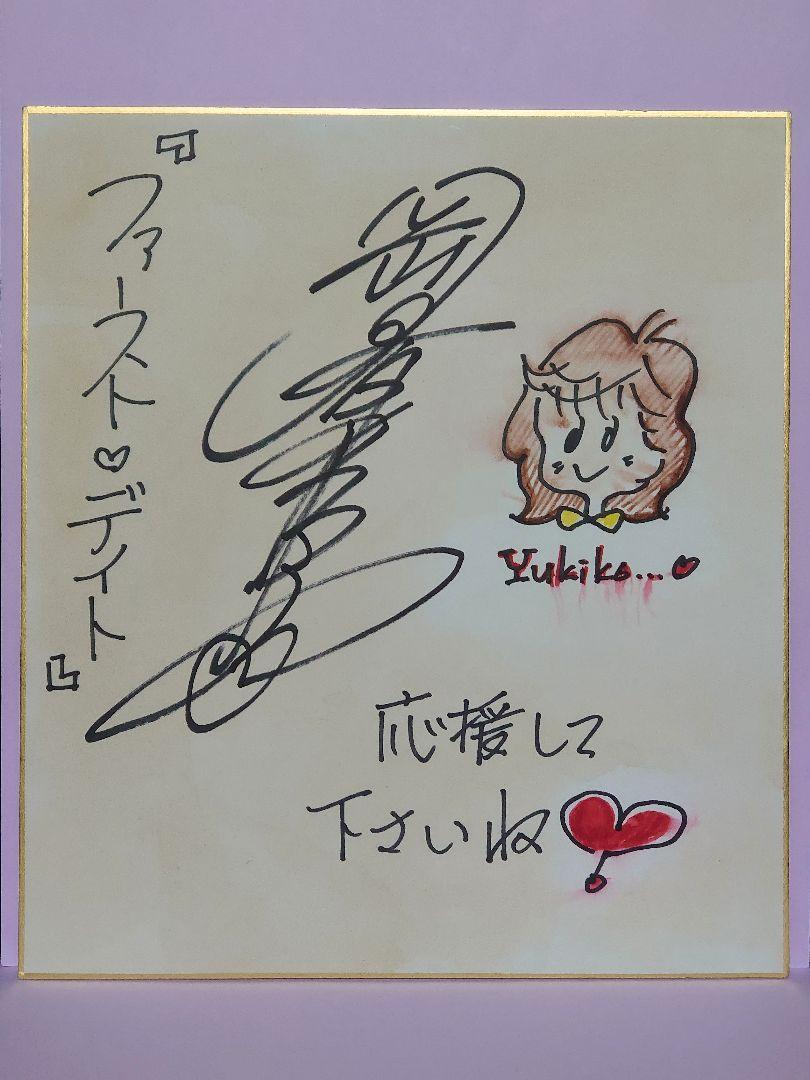 『ファースト♡デイト』
Yukiko...♥
応援して
下さいね